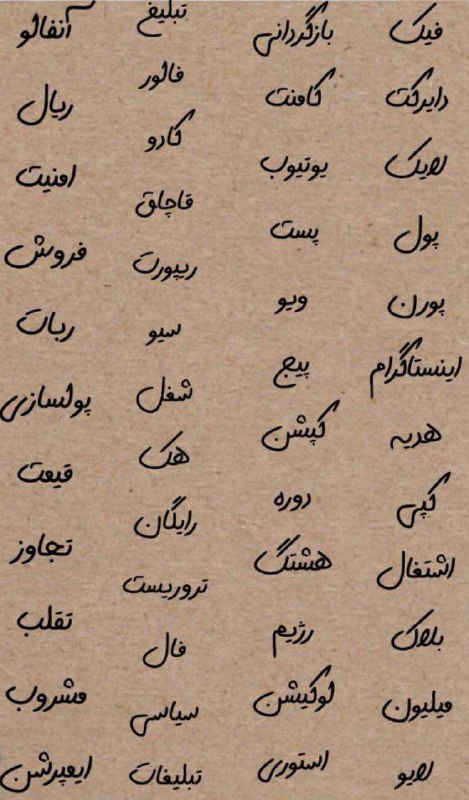 فیک
دایرکت
لایک
پول
پورن
اینستاگرام
هدیه
کپی
اشتغال
بلاک
میلیون
لایو
بازگردانی
کامنت
یوتیوب
پست
ویو
پیج
کپشن
دوره
هشتگ
رژیم
لوکیشن
استوری
تبلیغ
فالور
کادو
قاچاق
ریپورت
سیو
شغل
هک
رایگان
تروریست
فال
سیاسی
تبلیغات
آنفالو
ریال
امنیت
فروش
ربات
پولسازی
قیمت
تجاوز
تقلب
مشروب
ایمپرشن